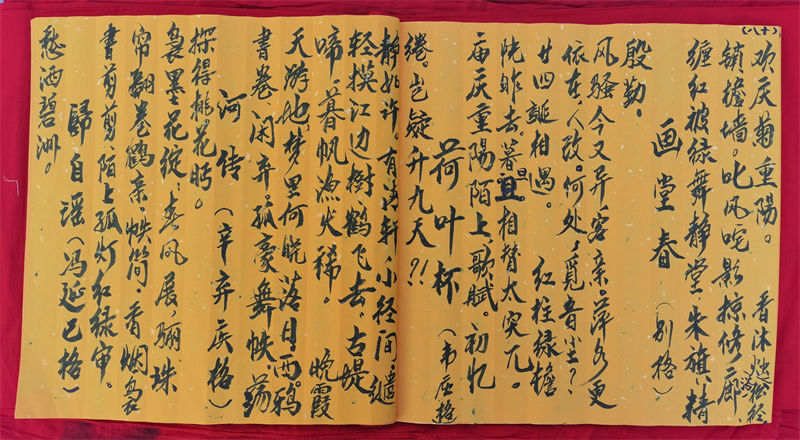 (八十)
欢庆菊重陽。 香沐烛松径
檐墙。叱风咤影掠修廊、
缠红被绿舞静堂。朱旗八精
画堂春 (别格)
殷勤。
风骚今又异、客亲萍水更
依在,人改。何处,觅音尘?、
廿四诞相遇。 红柱绿檐
院昨去。暮旦相替太突兀。
庙庆重陽陌上,歌赋。初忆
荷叶杯 (韦庄格)
绻。岂疑升九天?!
静如许。有轩。小径间,遣
轻摸江边樹,鹤飞去。古堤
啼。暮帆渔火稀。 晚霞
天游地梦里何晚落日西。鸦
书卷闲弃。孤豪舞帙荡
河传 (辛弃疾格)
探得桃花眄。
袅墨花绽、春风展,骊珠
帘翻卷鹤亲帙简。香烟袅
書剪剪陌上孤灯红绿审。
歸自谣(冯延巳格)
愁洒碧洲。